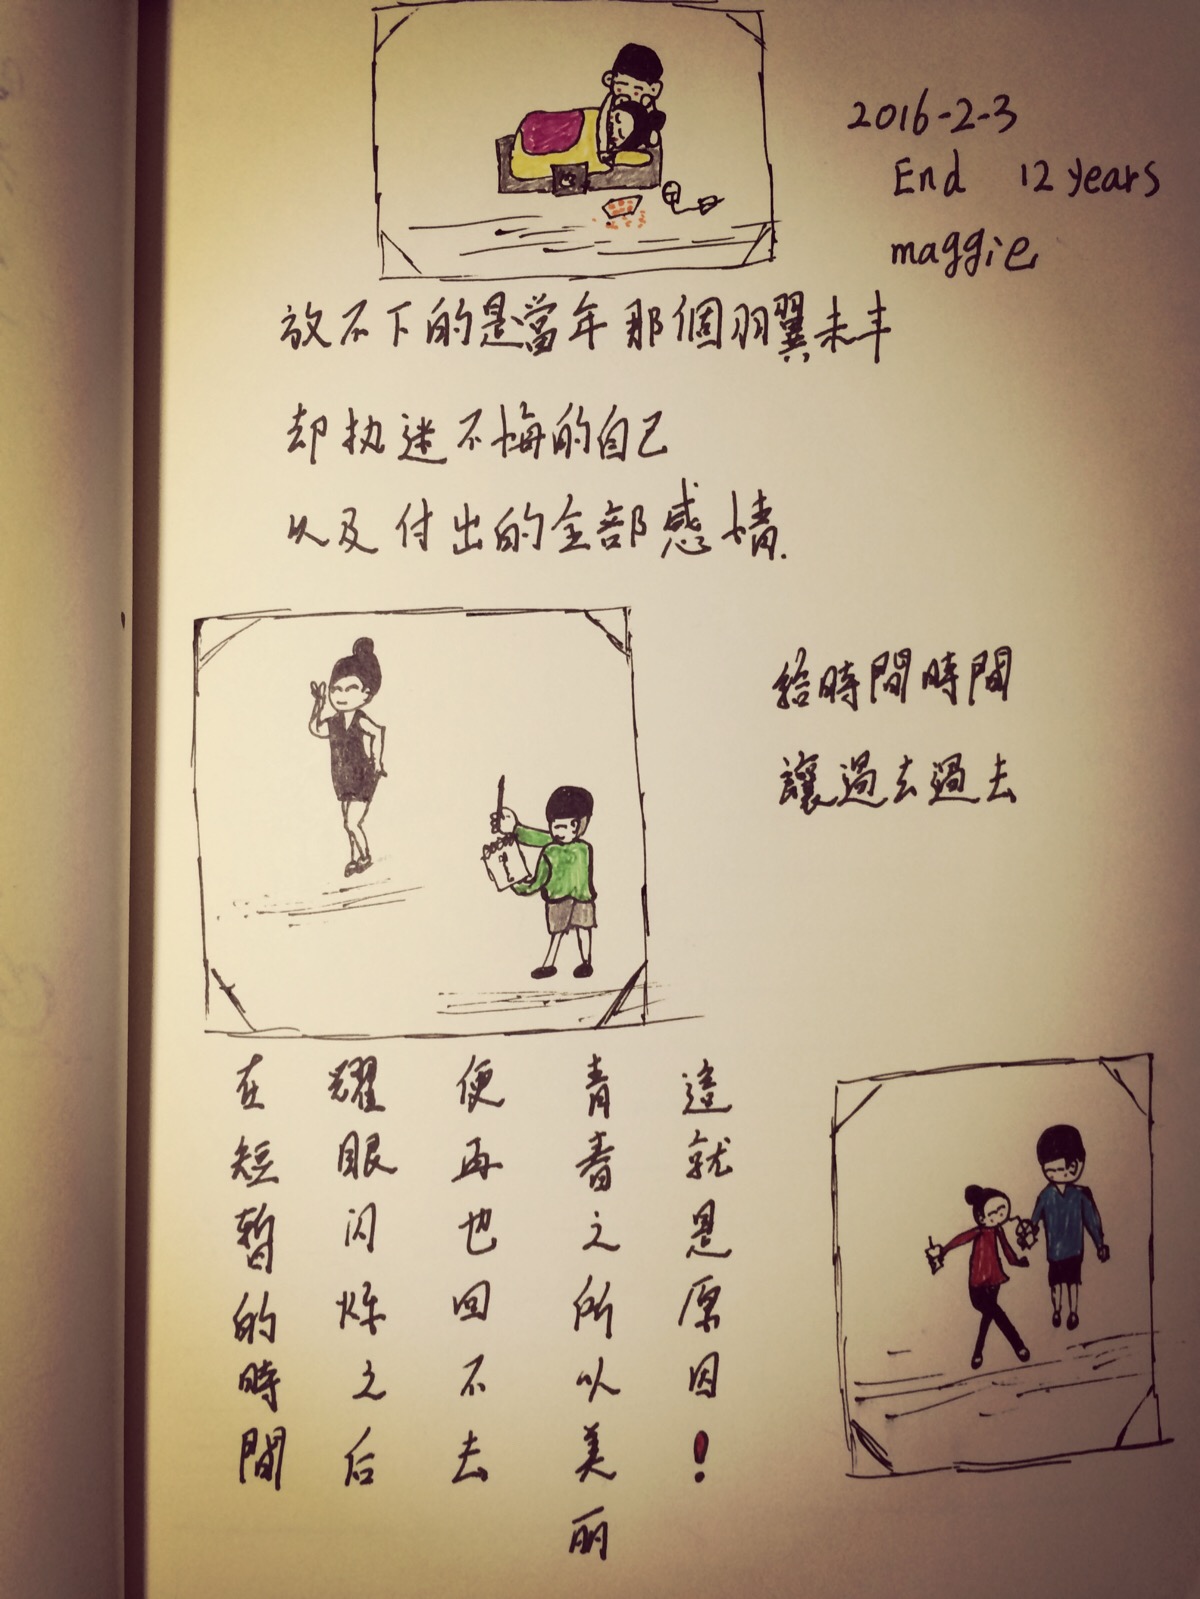 2016-2-3
End 12 years
maggie
放不下的是當年那個羽翼未丰
却执迷不悔的自己
以及付出的全部感情.
給時間時間
讓過去過去
在短暫的時間
耀眼闪烁之后
便再也回不去
青春之所以美丽
這就是原因!